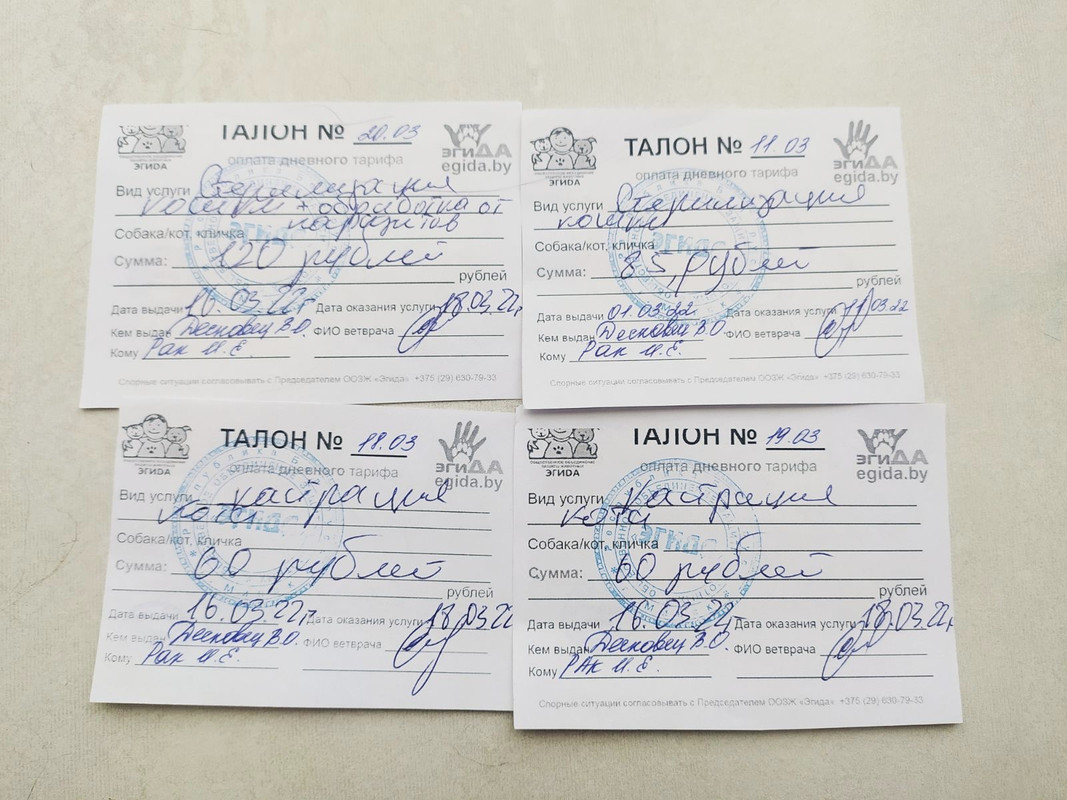 ТАЛОН № 20.03
ЭГИДА
эгиДА
egida.by
оплата дневного тарифа
Вид услуги Стерилизация
кошки + обработка от
паразитов
Собака/кот, кличка
Сумма: 120 рублей
рублей
Дата выдачи 16.03.22г Дата оказания услуги 18.03.22г
Кем выдан Десковец В.О. ФИО ветврача
Кому Рак И.Е.
Спорные ситуации согласовывать с Председателем ООЗЖ «Эгида» +375 (29) 630-79-33
ТАЛОН № 11.03
ЭГИДА
эгиДА
egida.by
оплата дневного тарифа
Вид услуги Стерилизация
кошки
Собака/кот, кличка
Сумма: 85, рублей
рублей
Дата выдачи 01.03.22. Дата оказания услуги 11.03.22
Кем выдан Десковец В.О. ФИО ветврача
Кому Рак И.Е.
Спорные ситуации согласовывать с Председателем ООЗЖ «Эгида» +375 (29) 630-79-33
ТАЛОН № 18.03
ЭГИДА
эгиДА
egida.by
оплата дневного тарифа
Вид услуги кастрация
кота
Собака/кот, кличка
Сумма: 60 рублей
рублей
Дата выдачи 16.03.22г Дата оказания услуги 18.03.22
Кем выдан Десковец В.О. ФИО ветврача
Кому Рак И.Е.
ТАЛОН № 19.03
ЭГИДА
эгиДА
egida.by
оплата дневного тарифа
Вид услуги Кастрация
кота
Собака/кот, кличка
Сумма: 60 рублей
рублей
Дата выдачи 16.03.22г Дата оказания услуги 18.03.22г
Кем выдан Десковец В.О. ФИО ветврача
Кому РАК И.Е.
Спорные ситуации согласовывать с Председателем ООЗЖ «Эгида» +375 (29) 630-79-33